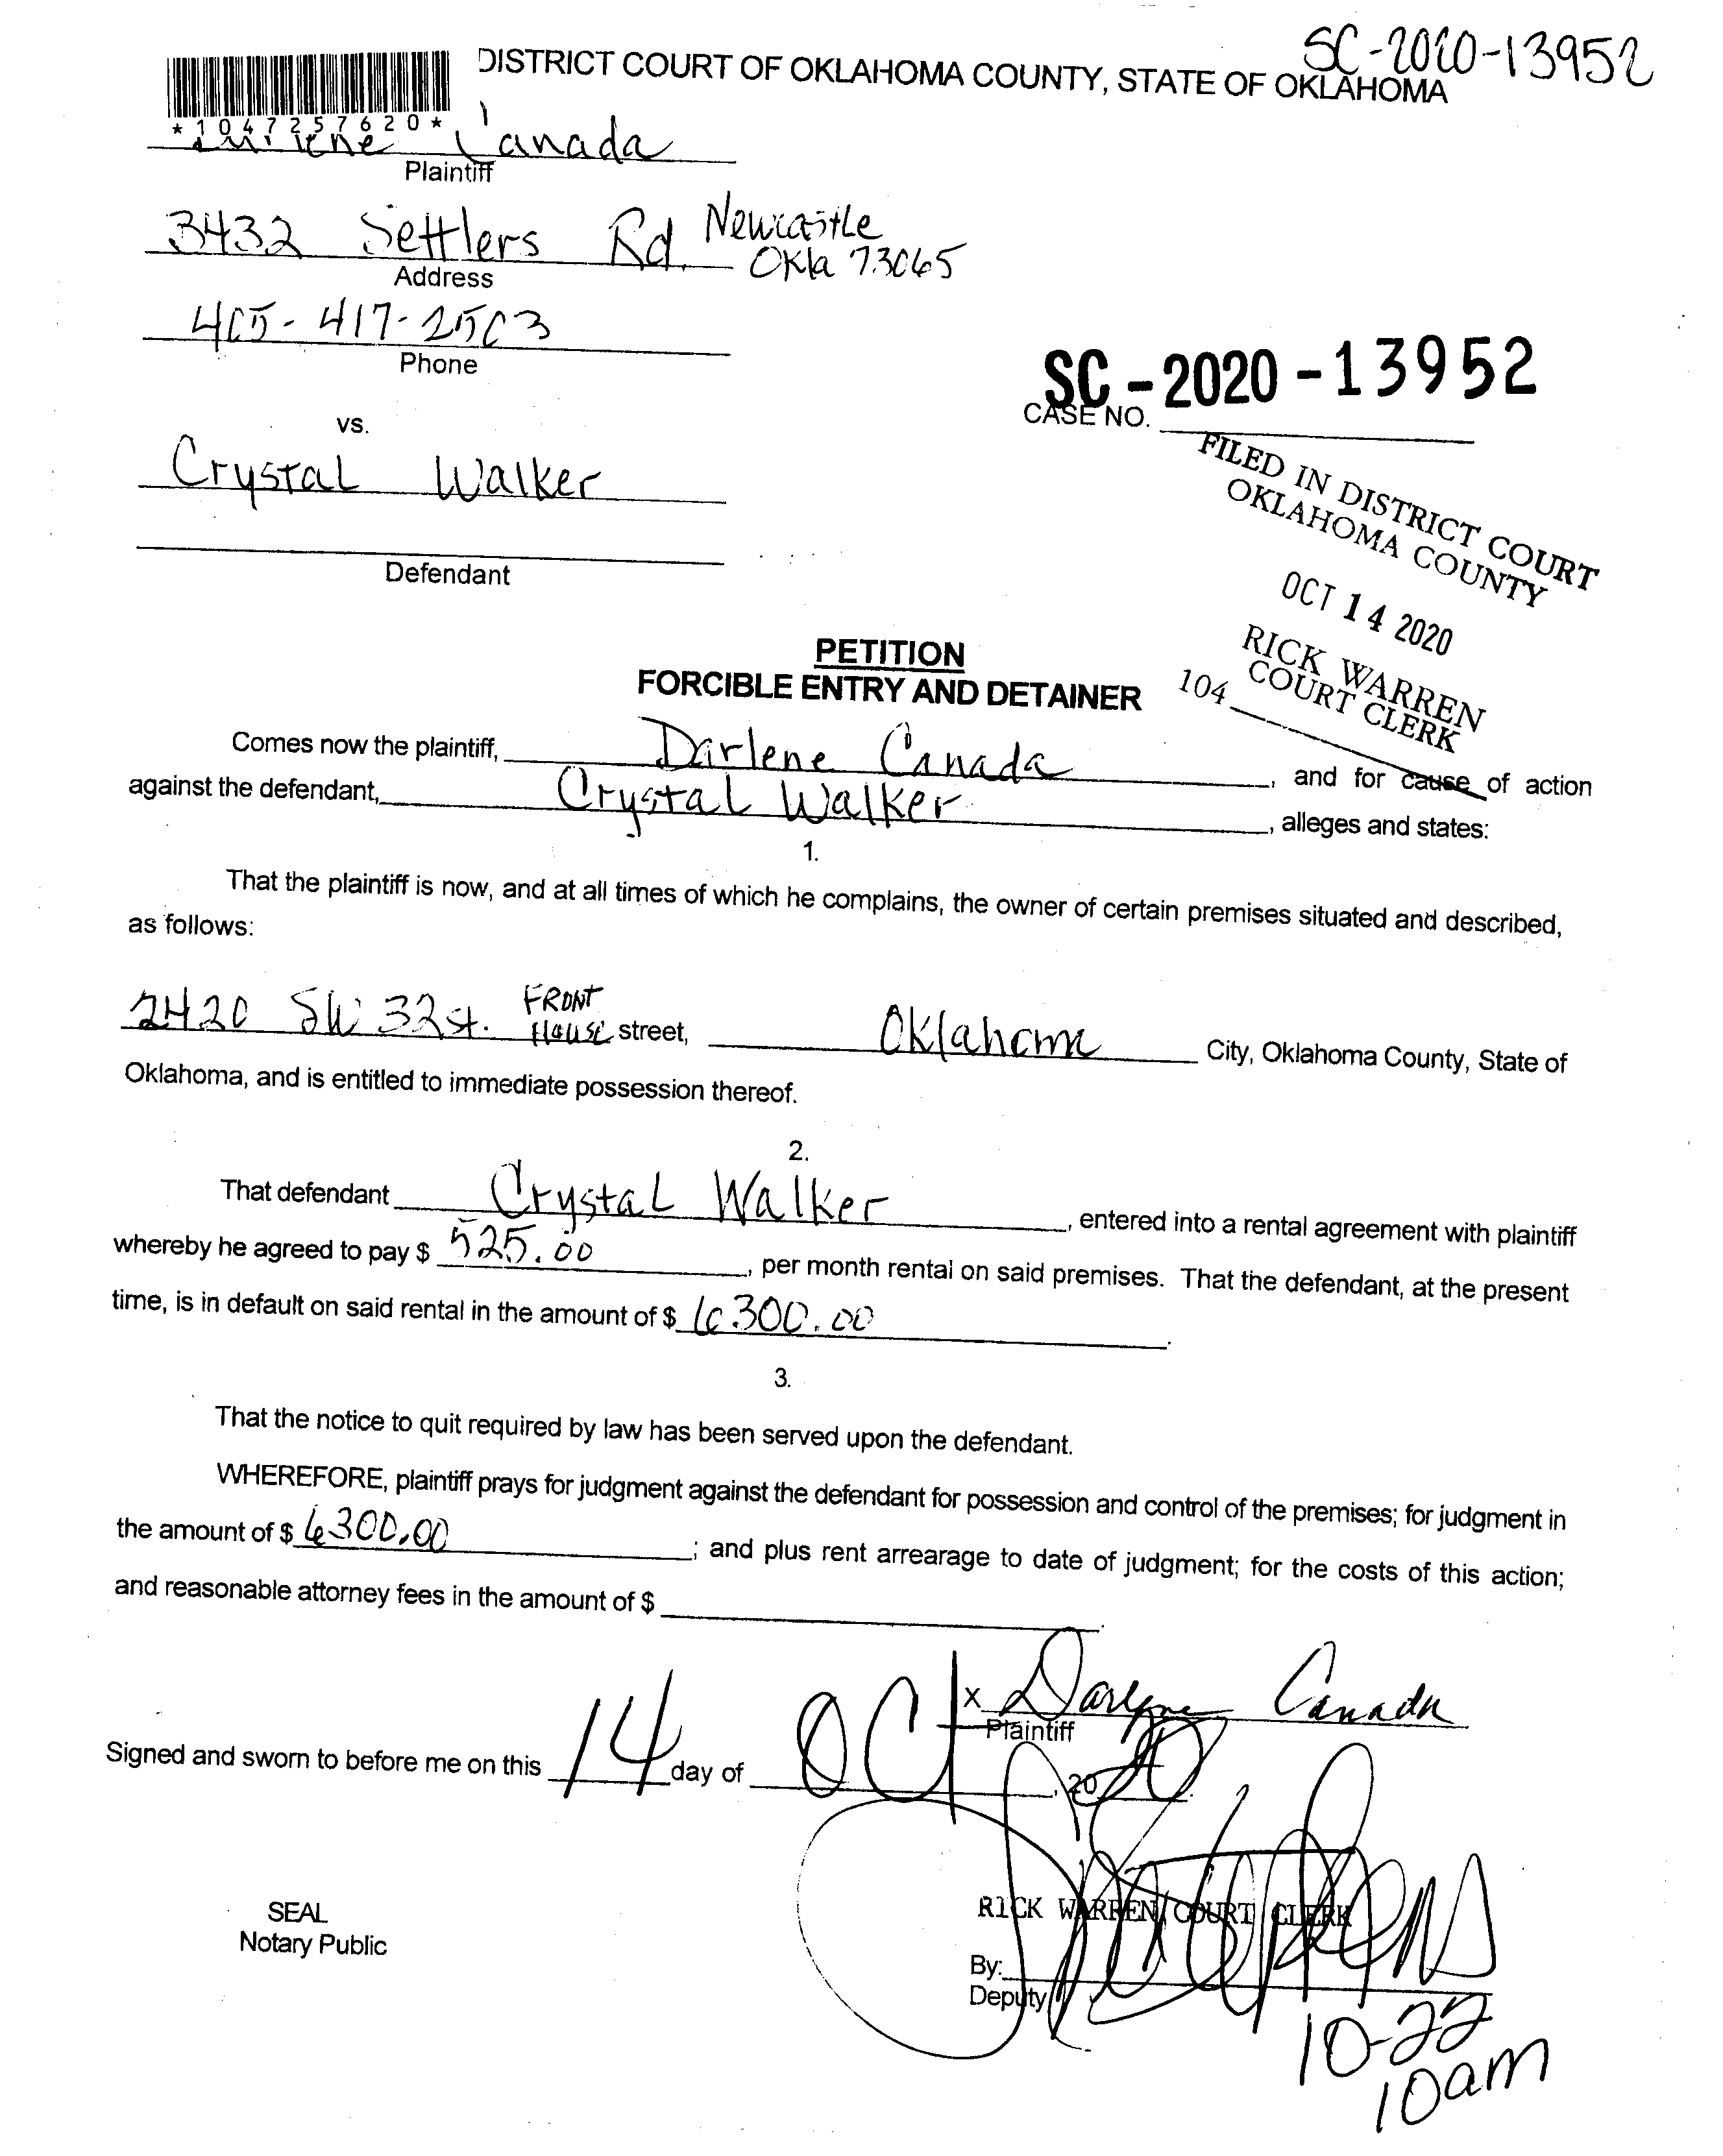 SC-2020-13952
DISTRICT COURT OF OKLAHOMA COUNTY, STATE OF OKLAHOMA
*1047257620*
Canada
Plaintiff
3432 Settlers Rd. Newcastle
Okla 73065
Address
405-417-2503
Phone
SC-2020-13952
CASE NO.
vs.
Crystal Walker
Defendant
FILED IN DISTRICT COURT
OKLAHOMA COUNTY
OCT 14 2020
RICK WARREN
COURT CLERK
104
PETITION
FORCIBLE ENTRY AND DETAINER
Comes now the plaintiff, Darlene Canada, and for cause of action
against the defendant, Crystal Walker, alleges and states:
1.
That the plaintiff is now, and at all times of which he complains, the owner of certain premises situated and described,
as follows:
2420 SW 32st. FRONT House street, Oklahoma City, Oklahoma County, State of
Oklahoma, and is entitled to immediate possession thereof.
2.
That defendant Crystal Walker, entered into a rental agreement with plaintiff
whereby he agreed to pay $ 525.00, per month rental on said premises. That the defendant, at the present
time, is in default on said rental in the amount of $ 6300.00.
3.
That the notice to quit required by law has been served upon the defendant.
WHEREFORE, plaintiff prays for judgment against the defendant for possession and control of the premises; for judgment in
the amount of $ 6300.00; and plus rent arrearage to date of judgment; for the costs of this action;
and reasonable attorney fees in the amount of $
x Darlene Canada
Plaintiff
Signed and sworn to before me on this 14 day of Oct, 2020.
SEAL
Notary Public
RICK WARREN, COURT CLERK
By:
Deputy
10-22
10am